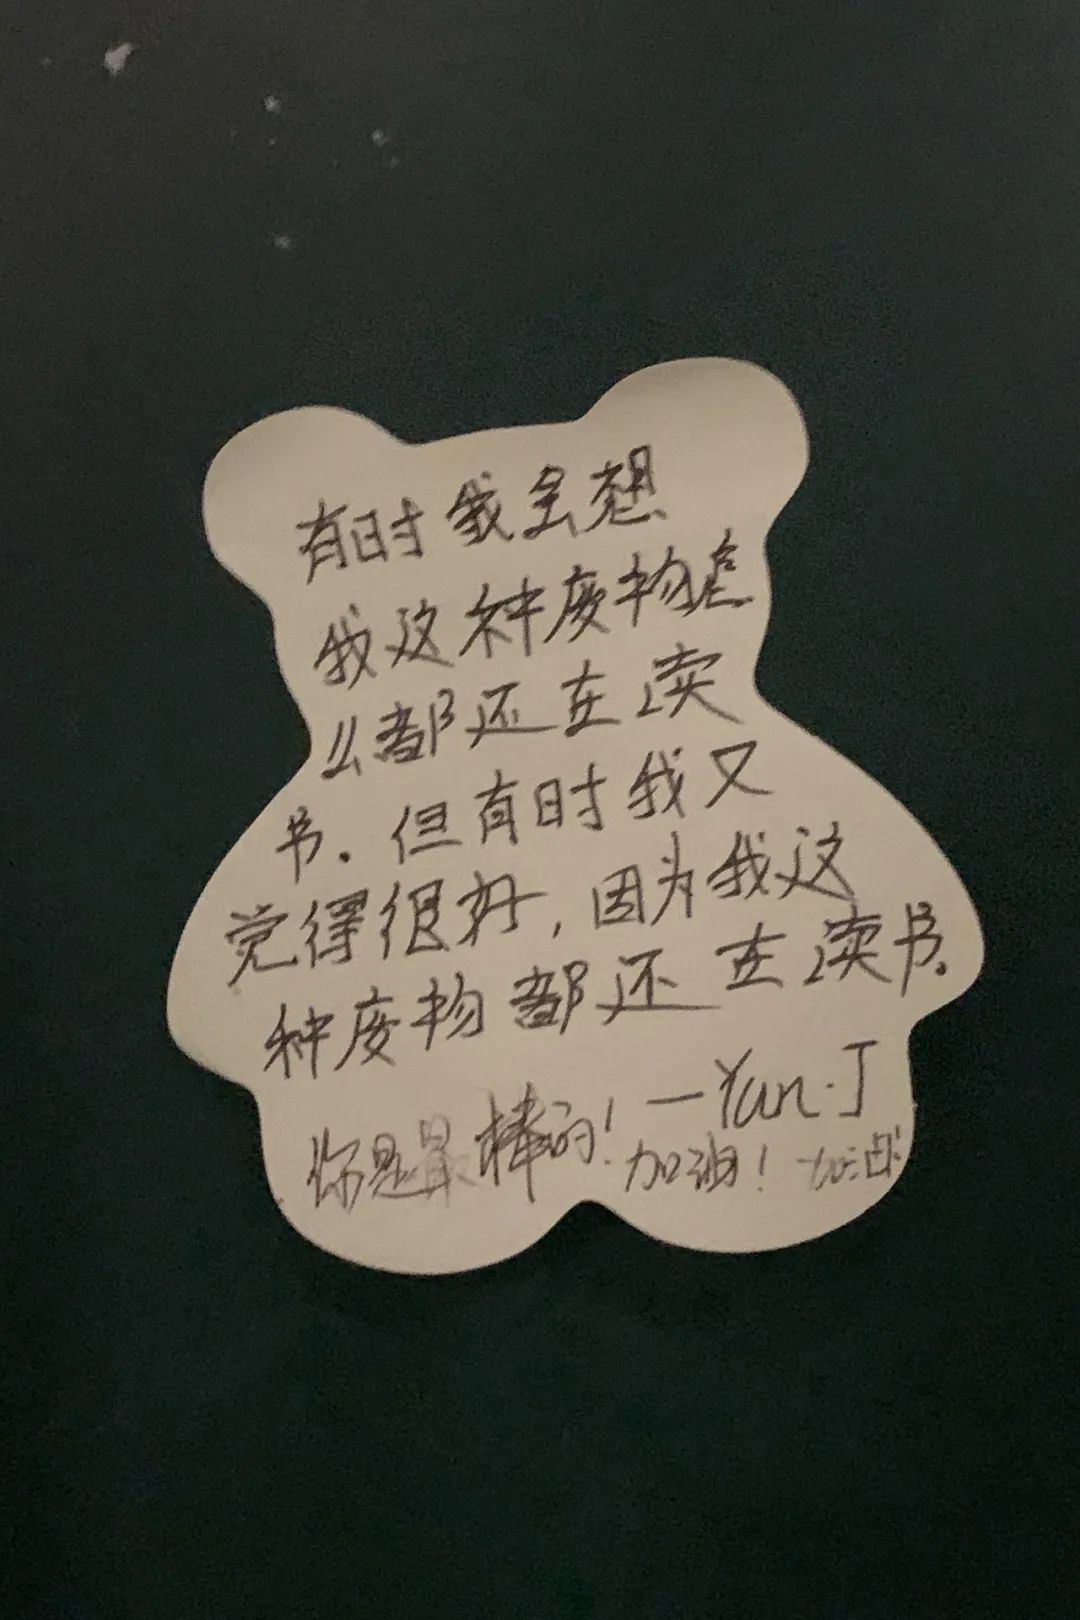 有时我会想
我这种废物怎
么都还在读
书.但有时我又
觉得很好,因为我这
种废物都还在读书.
—Yun.J
你是最棒的!
加油! 加油